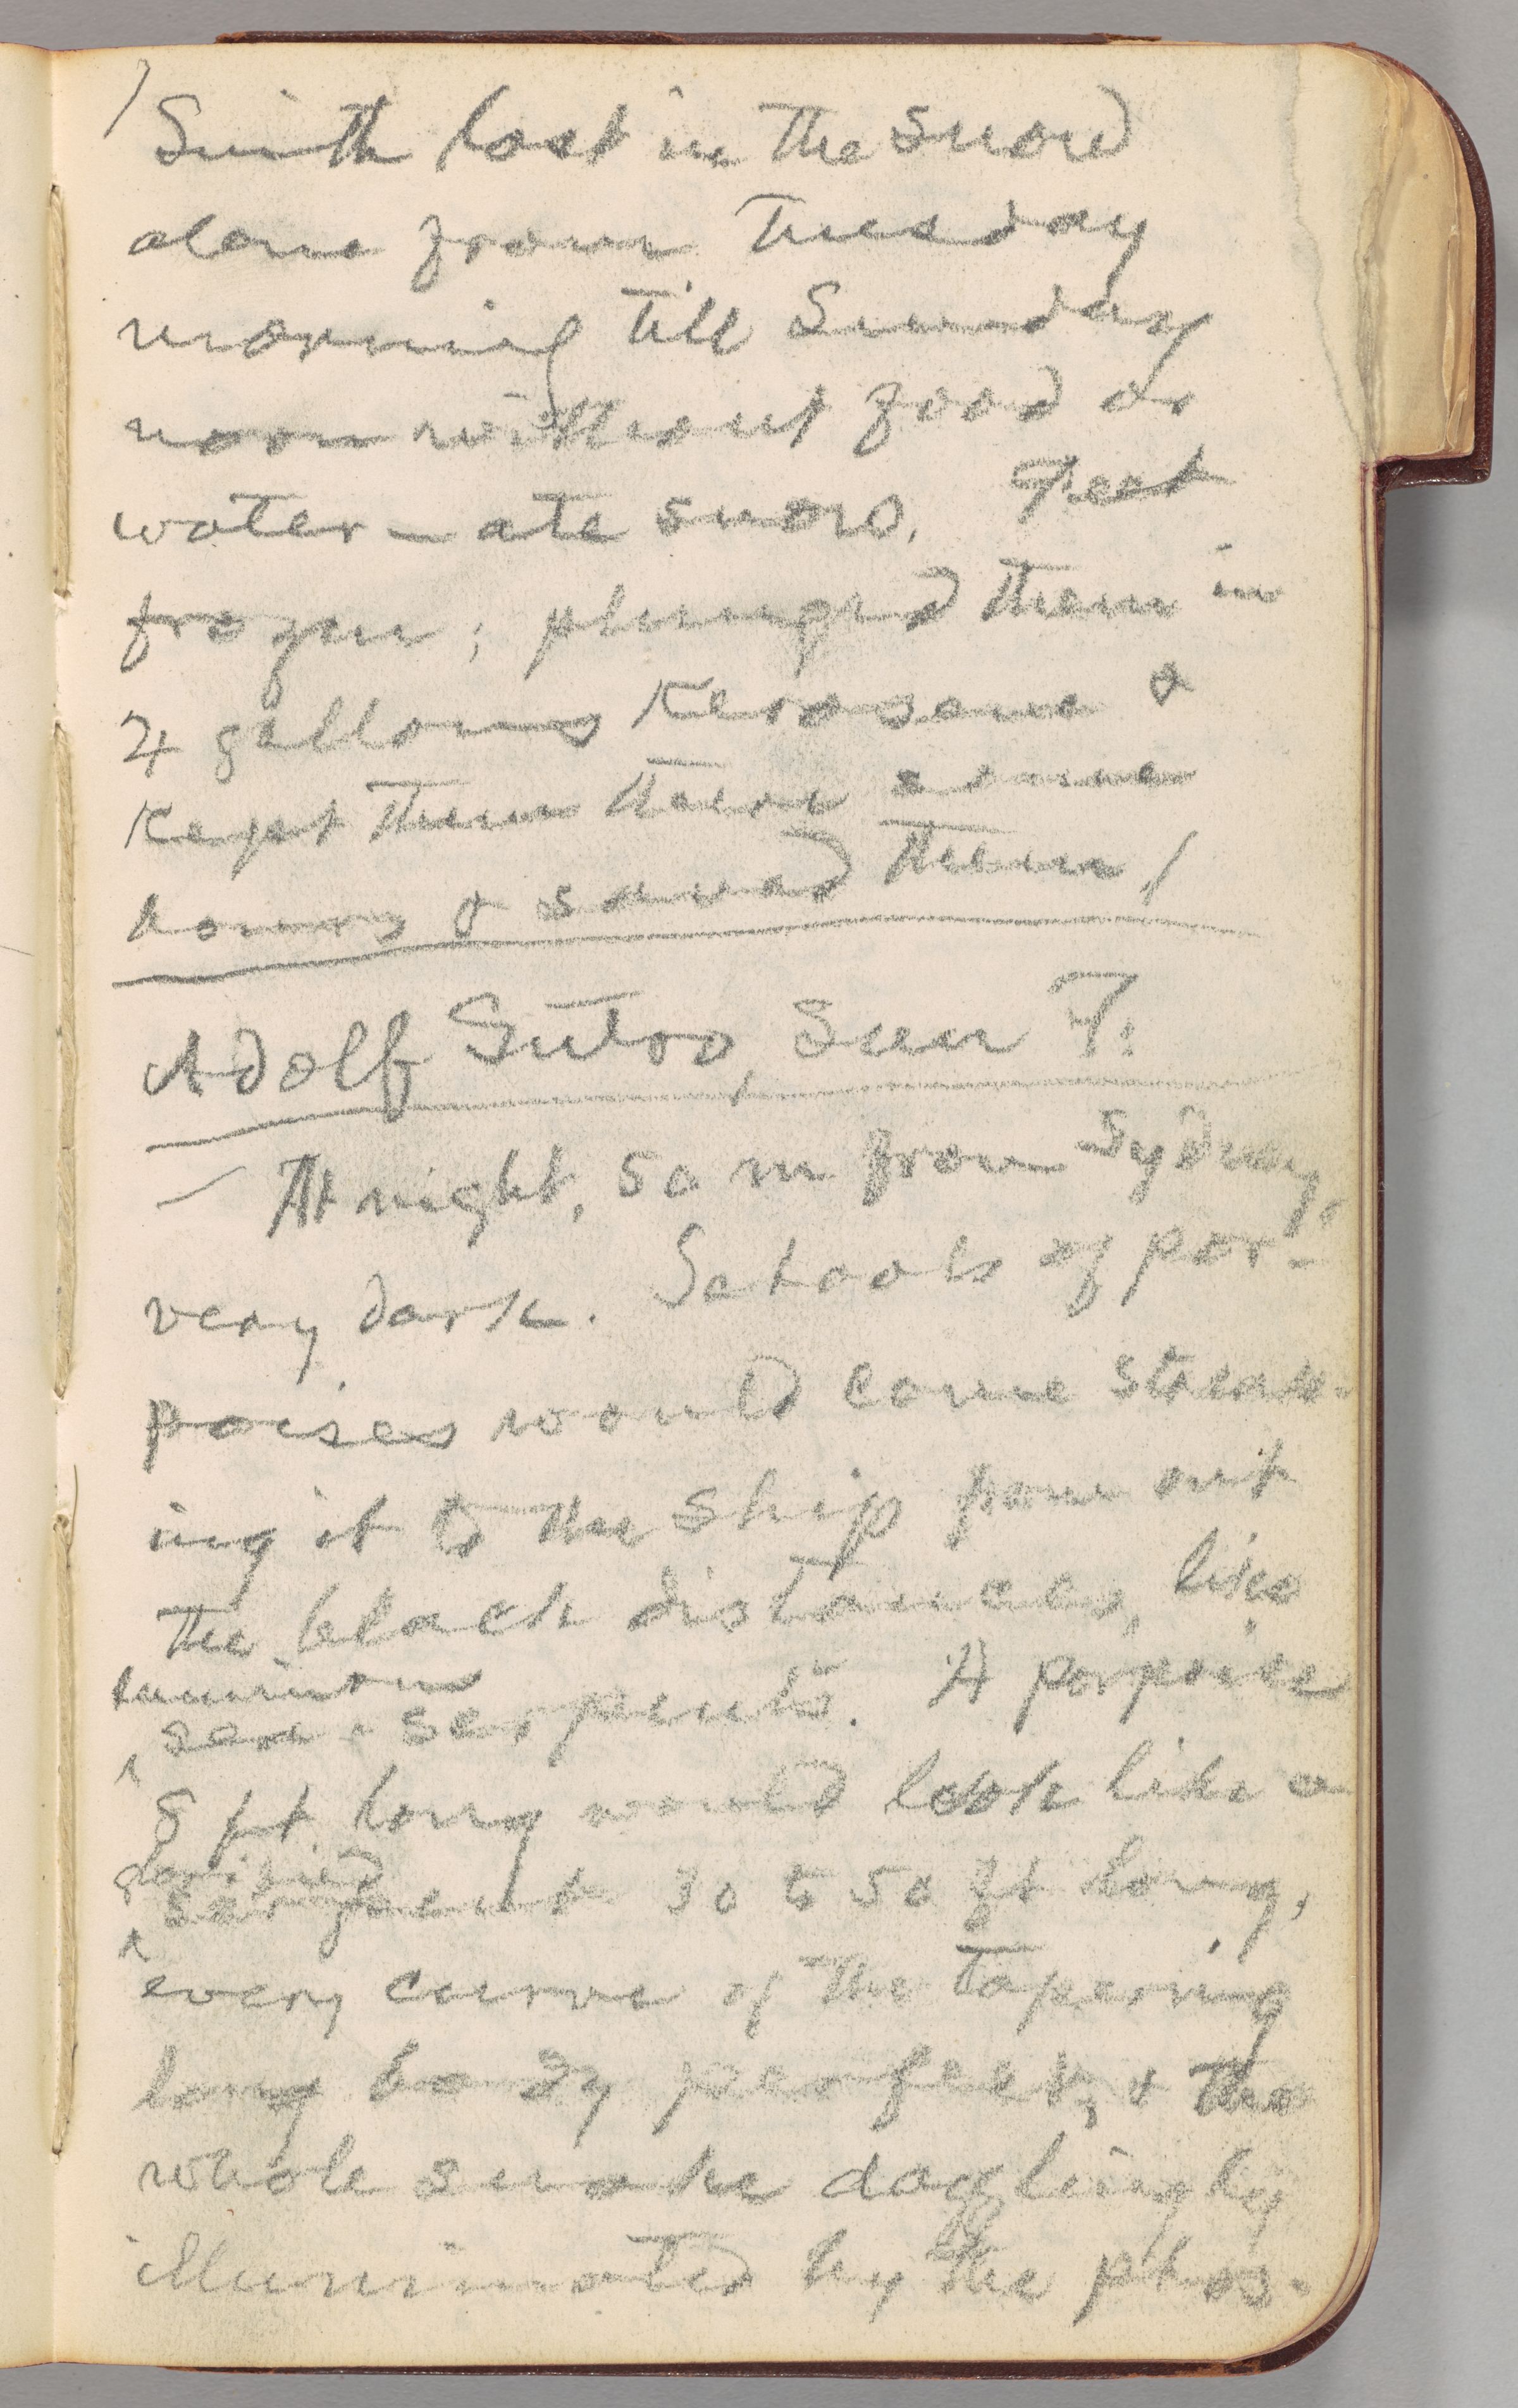 Smith lost in the snow
alone from Tuesday
morning till Sunday
noon without food or
water — ate snow. Feet
frozen; plunged them in
4 gallons Kerosene &
Kept them there some
hours & saved them!
Adolf Sutro, San F.
— At night, 50 m from Sydney,
very dark. Schools of por-
poises would come streak-
ing it to the ship from out
the black distances, like
luminous
sea-serpents. A porpoise
8 ft long would look like a
glorified
serpent 30 to 50 ft long,
every curve of the tapering
long body perfect, & the
whole snake dazzlingly
illuminated by the phos-